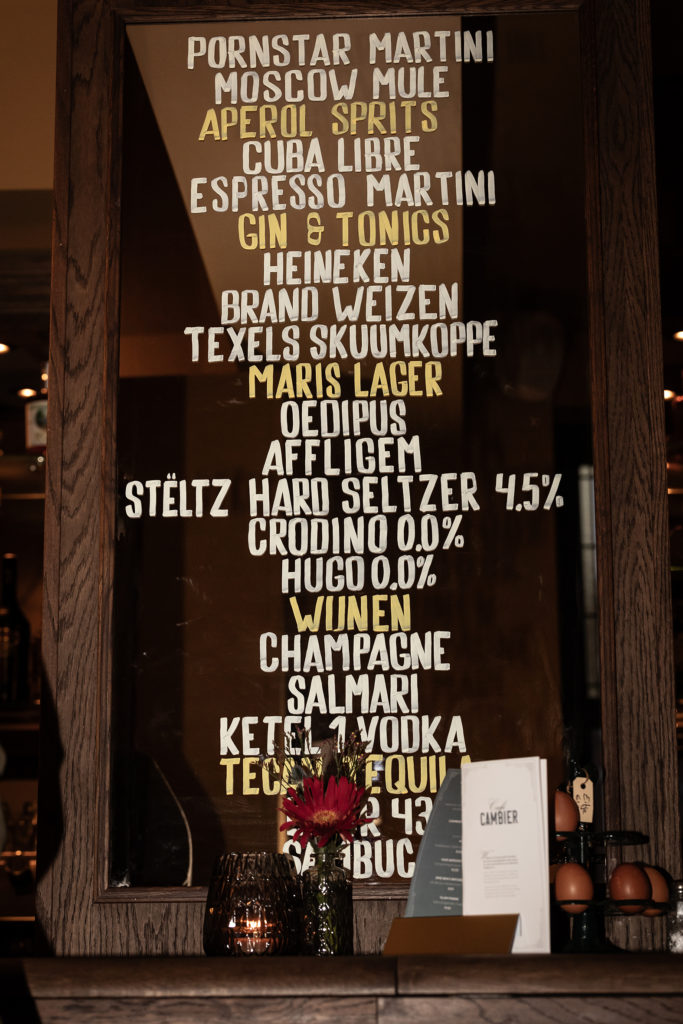 PORNSTAR MARTINI
MOSCOW MULE
APEROL SPRITS
CUBA LIBRE
ESPRESSO MARTINI
GIN & TONICS
HEINEKEN
BRAND WEIZEN
TEXELS SKUUMKOPPE
MARIS LAGER
OEDIPUS
AFFLIGEM
STËLTZ HARD SELTZER 4.5%
CRODINO 0.0%
HUGO 0.0%
WIJNEN
CHAMPAGNE
SALMARI
KETEL 1 VODKA
43
Café
CAMBIER